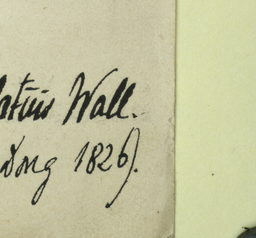 latus Wall.
Dong 1826).